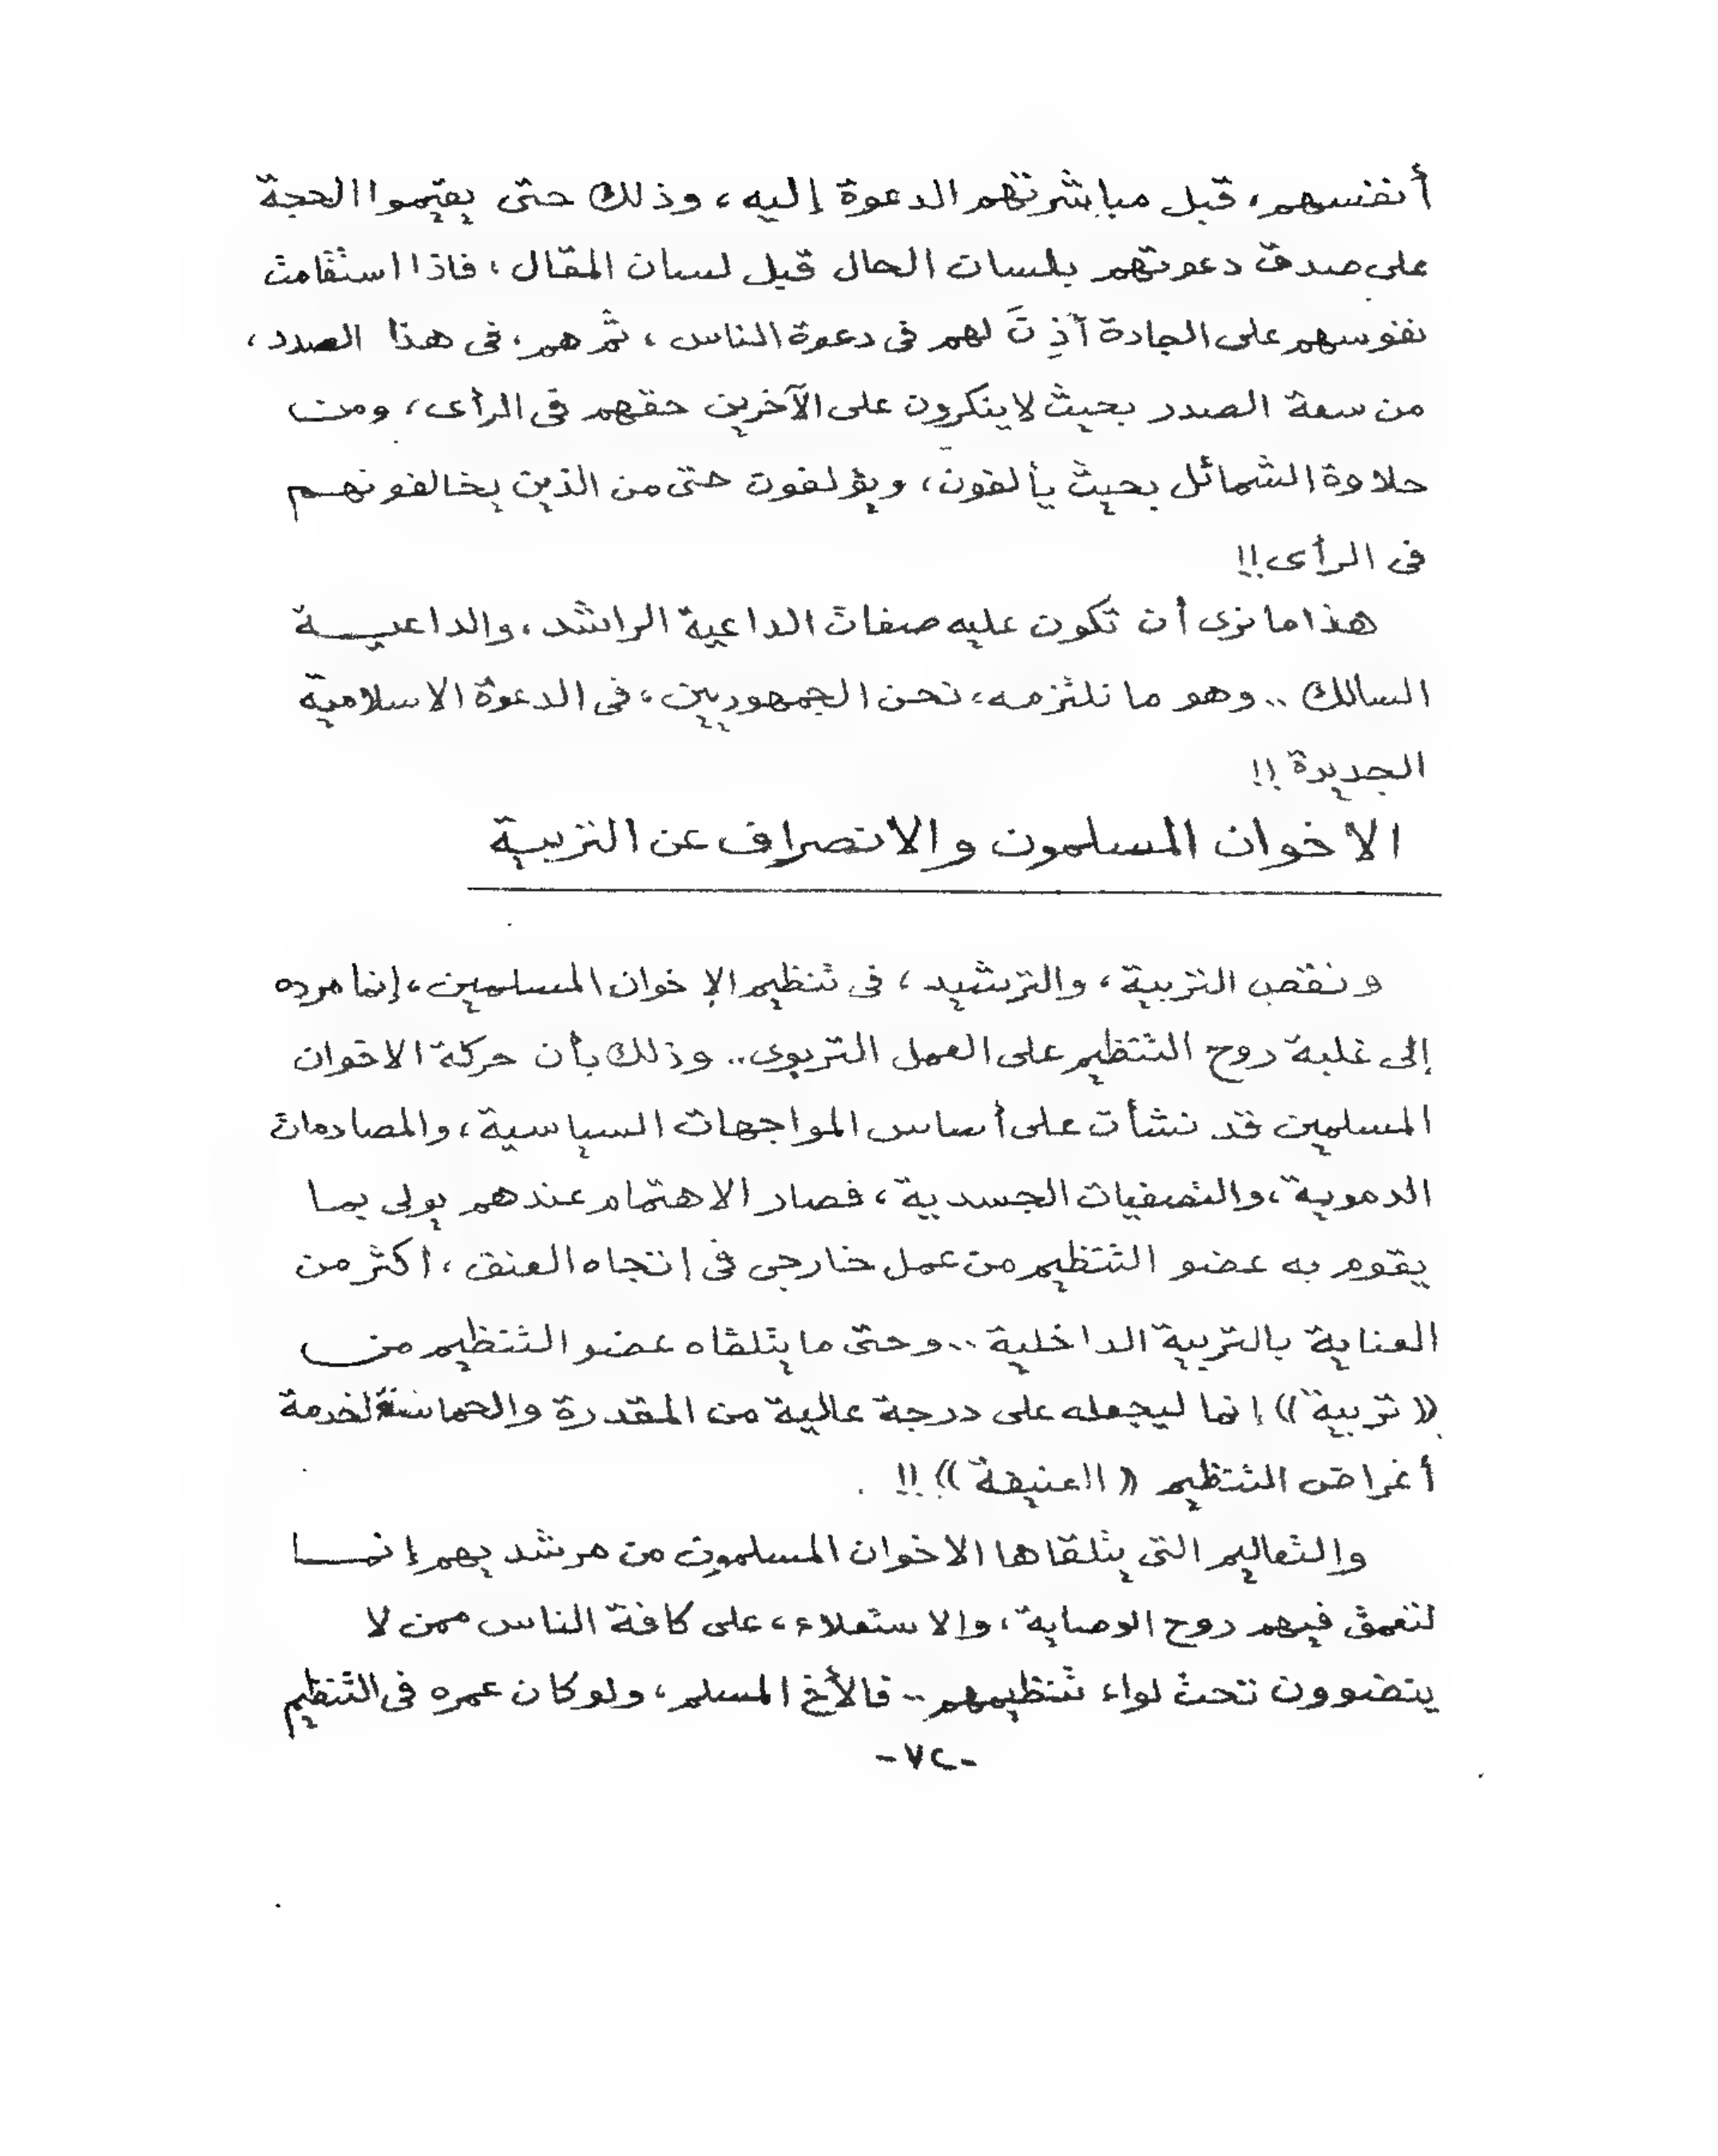 أنفسهم، قبل مباشرتهم الدعوة إليه، وذلك حتى يقيموا الحجة
على صدق دعوتهم بلسان الحال قبل لسان المقال، فاذا استقامت
نفوسهم على الجادة أذِنَ لهم فى دعوة الناس، ثم هم، فى هذا الصدد،
من سعة الصدر بحيث لا ينكرون على الآخرين حقهم فى الرأى، ومن
حلاوة الشمائل بحيث يألفون، ويؤلفون حتى من الذين يخالفونهم
فى الرأى!!
هذا ما نرى أن تكون عليه صفات الداعية الراشد، والداعية
السالك .. وهو ما نلتزمه، نحن الجمهوريين، فى الدعوة الاسلامية
الجديدة !!
الاخوان المسلمون والانصراف عن التربية
ونقص التربية، والترشيد، فى تنظيم الإخوان المسلمين، إنما مرده
إلى غلبة روح التنظيم على العمل التربوى.. وذلك بأن حركة الاخوان
المسلمين قد نشأت على أساس المواجهات السياسية، والمصادمات
الدموية، والتصفيات الجسدية، فصار الاهتمام عندهم يولى بما
يقوم به عضو التنظيم من عمل خارجى فى إتجاه العنف، أكثر من
العناية بالتربية الداخلية .. وحتى ما يتلقاه عضو التنظيم من
((تربية)) إنما ليجعله على درجة عالية من المقدرة والحماسة لخدمة
أغراض التنظيم ((العنيفة)) !!
والتعاليم التى يتلقاها الاخوان المسلمون من مرشديهم إنما
لتعمق فيهم روح الوصاية، والاستعلاء، على كافة الناس ممن لا
ينضوون تحت لواء تنظيمهم .. فالأخ المسلم، ولو كان عمره فى التنظيم
-٧٢-